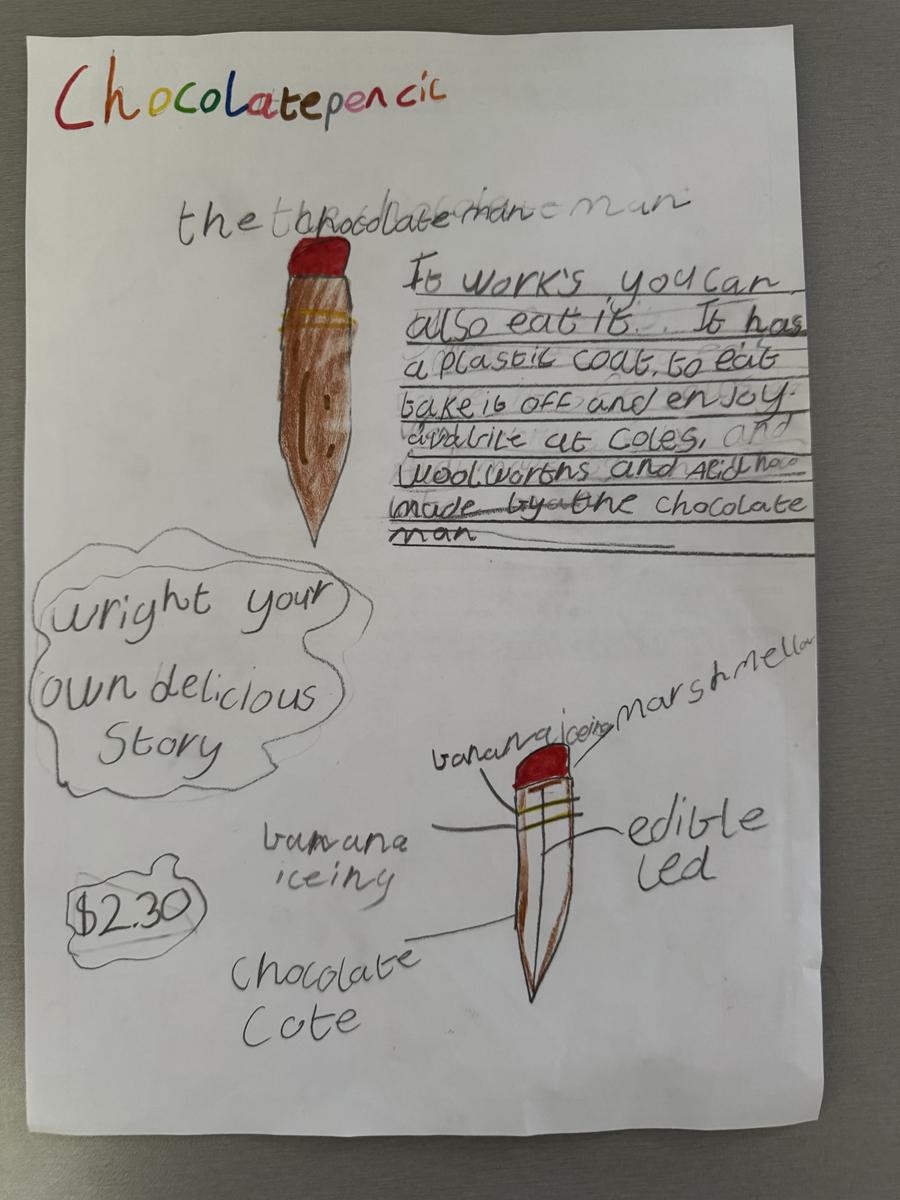 Chocolatepencil
the chocolate man man
It work's you can
also eat it. It has
a plastic coat, to eat
take it off and enjoy.
at Coles, and
Woolworths and
made by the chocolate
man
wright your
own delicious
Story
banana iceing marshmellow
banana
iceing
edible
led
$2.30
Chocolate
Cote